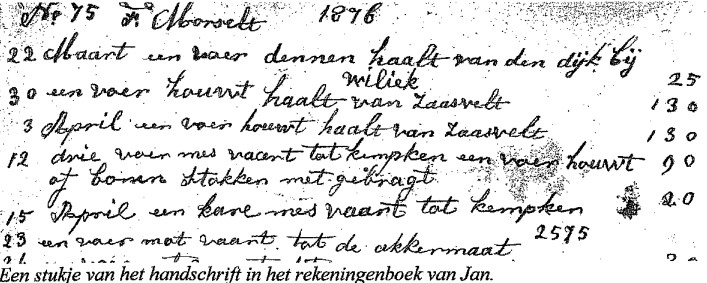 No 75 F. Morselt 1876
22 Maart een voer dennen haalt van den dijk bij
wiliek 25
30 een voer houwt haalt van Zaasvelt 130
3 April een voer houwt haalt van Zaasvelt 130
12 drie voer mes vaant tot kempken een voer houwt 90
of bonen stokken met gebragt
15 April een kare mes vaant tot kempken 20
23 en voer mot vaant tot de akkermaat 2575
Een stukje van het handschrift in het rekeningenboek van Jan.